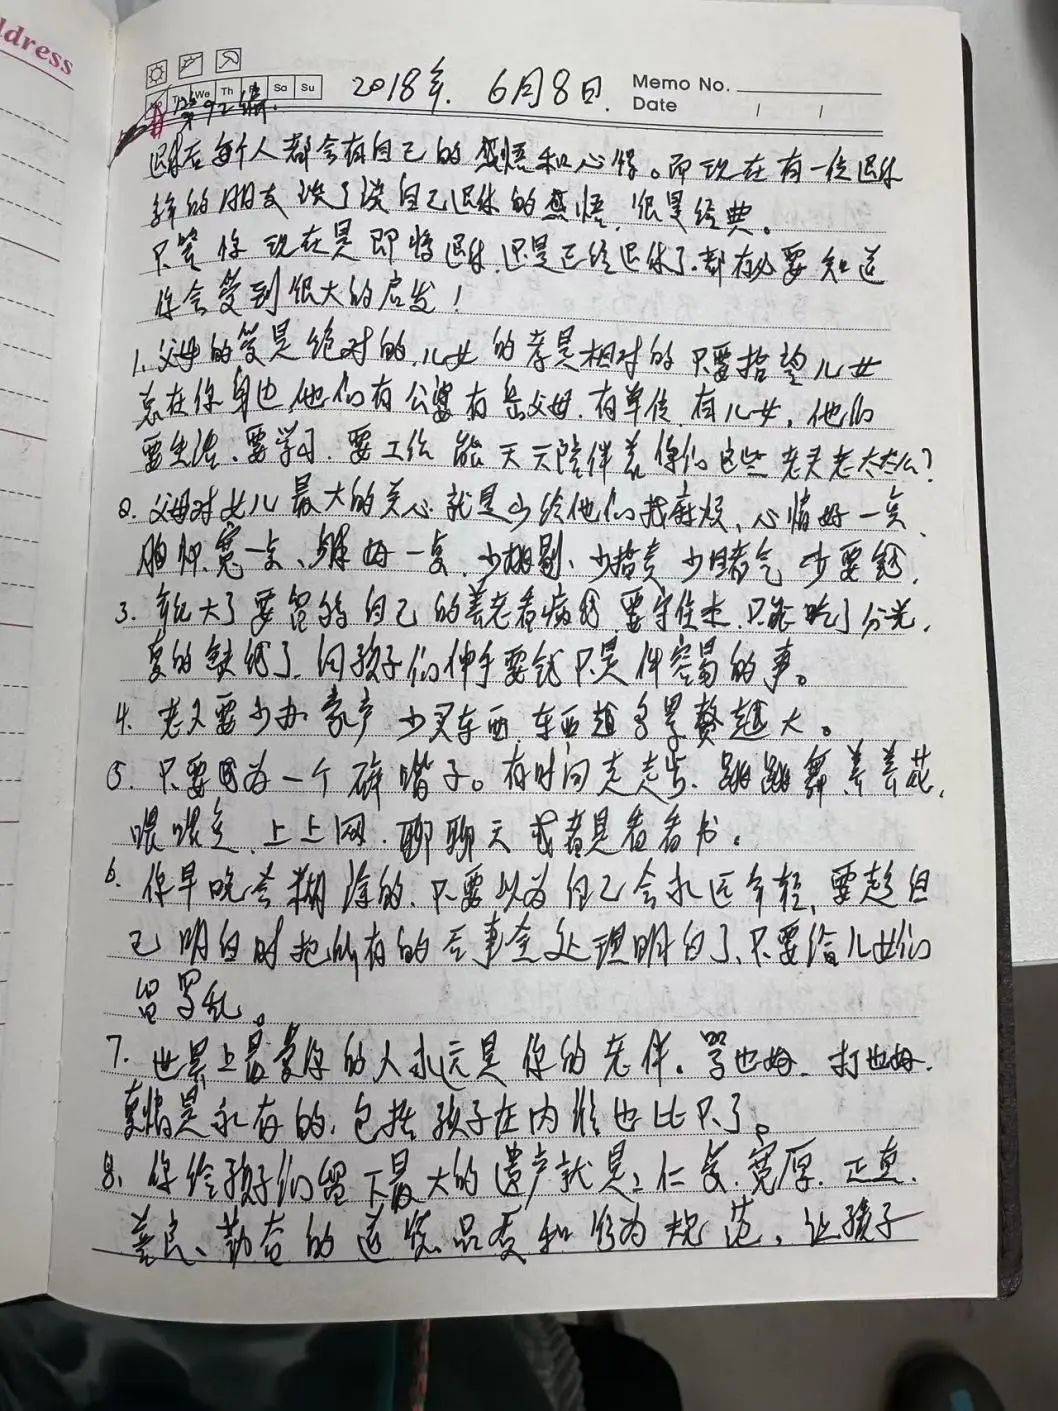 dress
We Th Sa Su
2018年. 6月8日.
Memo No.
Date
第92篇
退休后每个人都会有自己的感悟和心得。而现在有一位退休
多年的朋友谈了谈自己退休的感悟,很是经典。
只管你现在是即将退休,还是已经退休了.都有必要知道
你会受到很大的启发!
1.父母的爱是绝对的,儿女的孝是相对的只要指望儿女
总在你身边,他们有公婆有岳父母.有单位.有儿女,他们
要生活、要学习.要工作能天天陪伴着你们这些老头老太太么?
2.父母对女儿最大的关心就是少给他们找麻烦、心情好一点、
胸怀宽一点、身体好一点、少挑剔、少指责少赌气少要钱,
3.年纪大了要留好自己的养老看病钱.要守住本.只能吃了分光,
真的缺钱了.向孩子们伸手要钱只是件容易的事。
4.老人要少办家产少买东西.东西越多累赘越大。
5.只要因为一个碎嘴子。有时间走走步.跳跳舞.养养花,
喂喂鱼、上上网.聊聊天或者是看看书。
6.你早晚会糊涂的.只要以为自己会永远年轻、要趁自
己明白时把所有的后事全处理明白了、只要给儿女们
留罗乱。
7.世界上最爱你的人永远是你的老伴。骂也好.打也好.
真情是永存的.包括孩子在内谁也比只了。
8、你给孩子们留下最大的遗产就是:仁爱.宽厚.正直.
善良、勤奋的道德品质和行为规范,让孩子